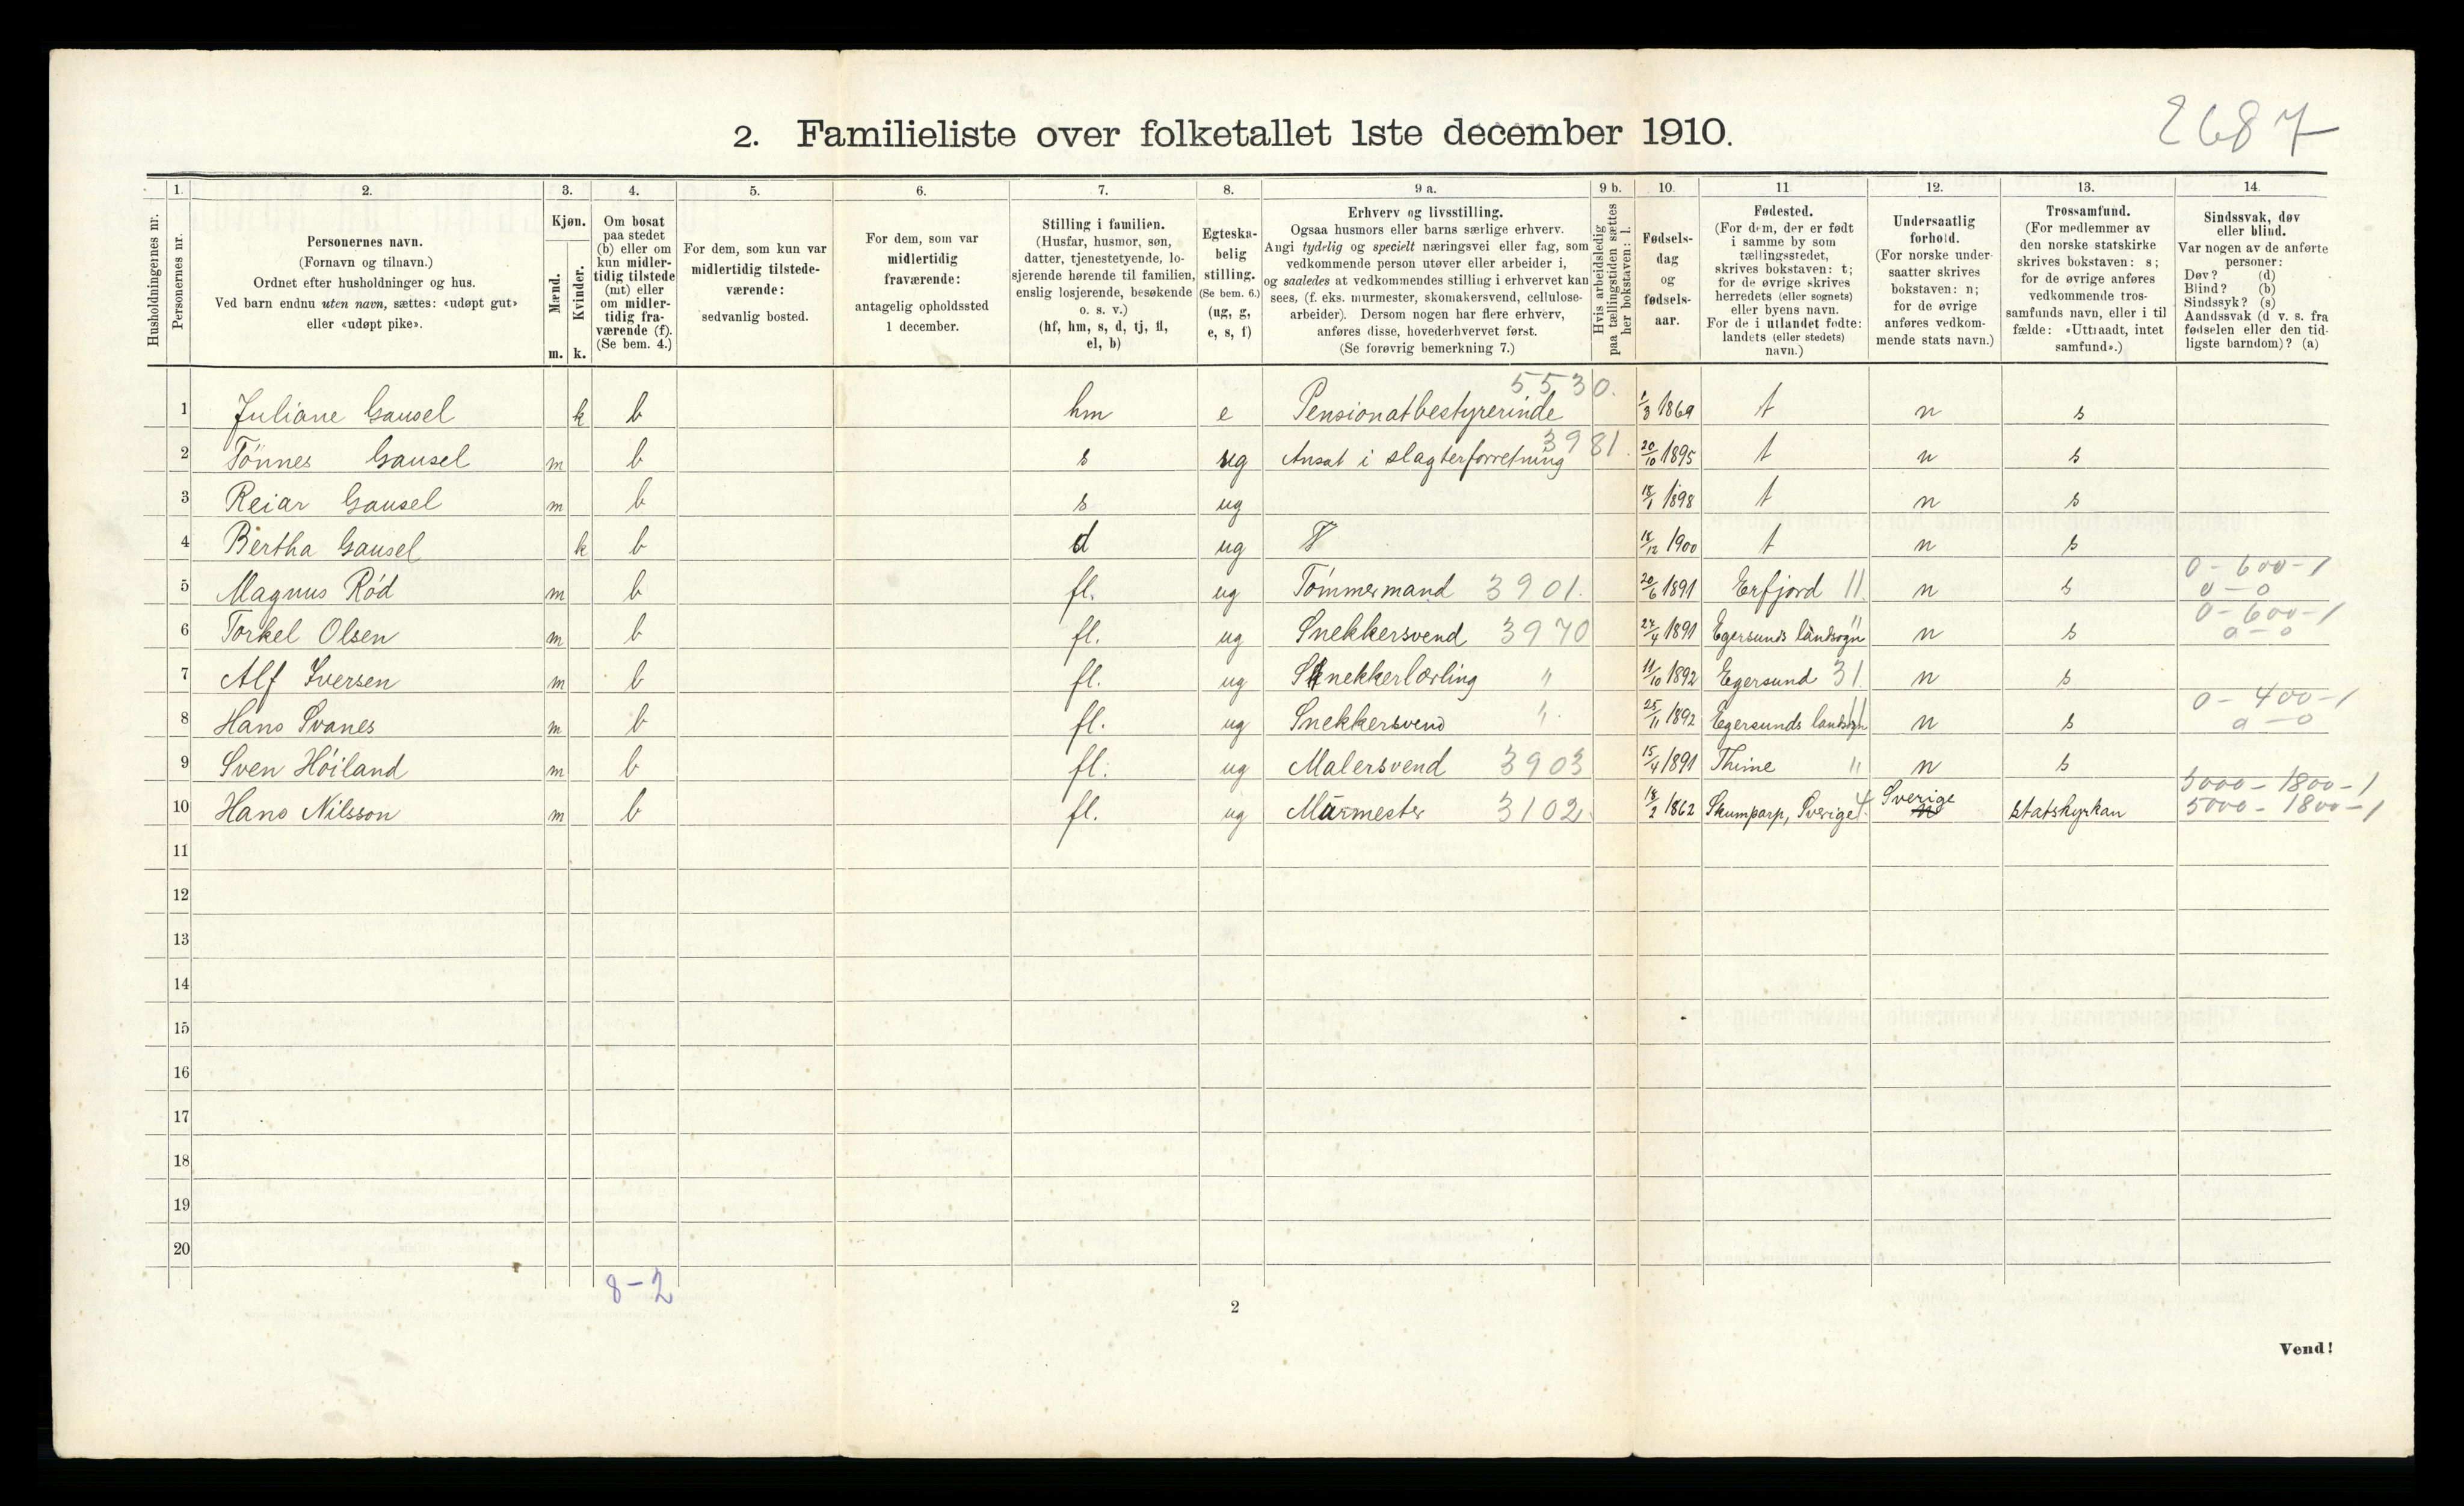 2687
2. Familieliste over folketallet 1ste december 1910.
1. 2. 3. 4. 5. 6. 7. 8. 9 a. 9 b. 10. 11 12. 13. 14.
Husholdningernes nr.
Personernes nr.
Personernes navn.
(Fornavn og tilnavn.)
Ordnet efter husholdninger og hus.
Ved barn endnu uten navn, sættes: «udøpt gut»
eller «udøpt pike».
Kjøn.
Mænd.
Kvinder.
m. k.
Om bosat
paa stedet
(b) eller om
kun midler-
tidig tilstede
(mt) eller
om midler-
tidig fra-
værende (f).
(Se bem. 4.)
For dem, som kun var
midlertidig tilstede-
værende:
sedvanlig bosted.
For dem, som var
midlertidig
fraværende:
antagelig opholdssted
1 december.
Stilling i familien.
(Husfar, husmor, søn,
datter, tjenestetyende, lo-
sjerende hørende til familien,
enslig losjerende, besøkende
o. s. v.)
(hf, hm, s, d, tj, fl,
el, b)
Egteska-
belig
stilling.
(Se bem. 6.)
(ug, g,
e, s, f)
Erhverv og livsstilling.
Ogsaa husmors eller barns særlige erhverv.
Angi tydelig og specielt næringsvei eller fag, som
vedkommende person utøver eller arbeider i,
og saaledes at vedkommendes stilling i erhvervet kan
sees, (f. eks. murmester, skomakersvend, cellulose-
arbeider). Dersom nogen har flere erhverv,
anføres disse, hovederhvervet først.
(Se forøvrig bemerkning 7.)
Hvis arbeidsledig
paa tællingstiden sættes
her bokstaven: l.
Fødsels-
dag
og
fødsels-
aar.
Fødested.
(For dem, der er født
i samme by som
tællingsstedet,
skrives bokstaven: t;
for de øvrige skrives
herredets (eller sognets)
eller byens navn.
For de i utlandet fødte:
landets (eller stedets)
navn.)
Undersaatlig
forhold.
(For norske under-
saatter skrives
bokstaven: n;
for de øvrige
anføres vedkom-
mende stats navn.)
Trossamfund.
(For medlemmer av
den norske statskirke
skrives bokstaven: s;
for de øvrige anføres
vedkommende tros-
samfunds navn, eller i til
fælde: «Uttraadt, intet
samfund».)
Sindssvak, døv
eller blind.
Var nogen av de anførte
personer:
Døv? (d)
Blind? (b)
Sindssyk? (s)
Aandssvak (d v. s. fra
fødselen eller den tid-
ligste barndom)? (a)
5530.
1 Juliane Gausel k b hm e Pensionatbestyrerinde 1/3 1869 t n s
3981.
2 Tönnes Gausel m b s ug Ansat i slagterforretning 20/10 1895 t n s
3 Reiar Gausel m b s ug 18/1 1898 t n s
4 Bertha Gausel k b d ug 18/12 1900 t n s
0 - 600 - 1
5 Magnus Röd m b fl. ug Tömmermand 3901. 20/6 1891 Erfjord 11. n s 0 - 0
0 - 600 - 1
6 Torkel Olsen m b fl. ug Snekkersvend 3970 27/4 1891 Egersunds landsogn " n s 0 - 0
7 Alf Iversen m b fl. ug Snekkerlærling " 11/10 1892 Egersund 31. n s
0 - 400 - 1
8 Hans Svanes m b fl. ug Snekkersvend " 25/11 1892 Egersunds landsogn n s 0 - 0
9 Sven Höiland m b fl. ug Malersvend 3903 15/4 1891 Thime " n s
5000 - 1800 - 1
10 Hans Nilsson m b fl. ug Murmester 3102. 18/2 1862 Skumparp, Sverige Sverige statskyrkan 5000 - 1800 - 1
11
12
13
14
15
16
17
18
19
20
8-2
2
Vend!